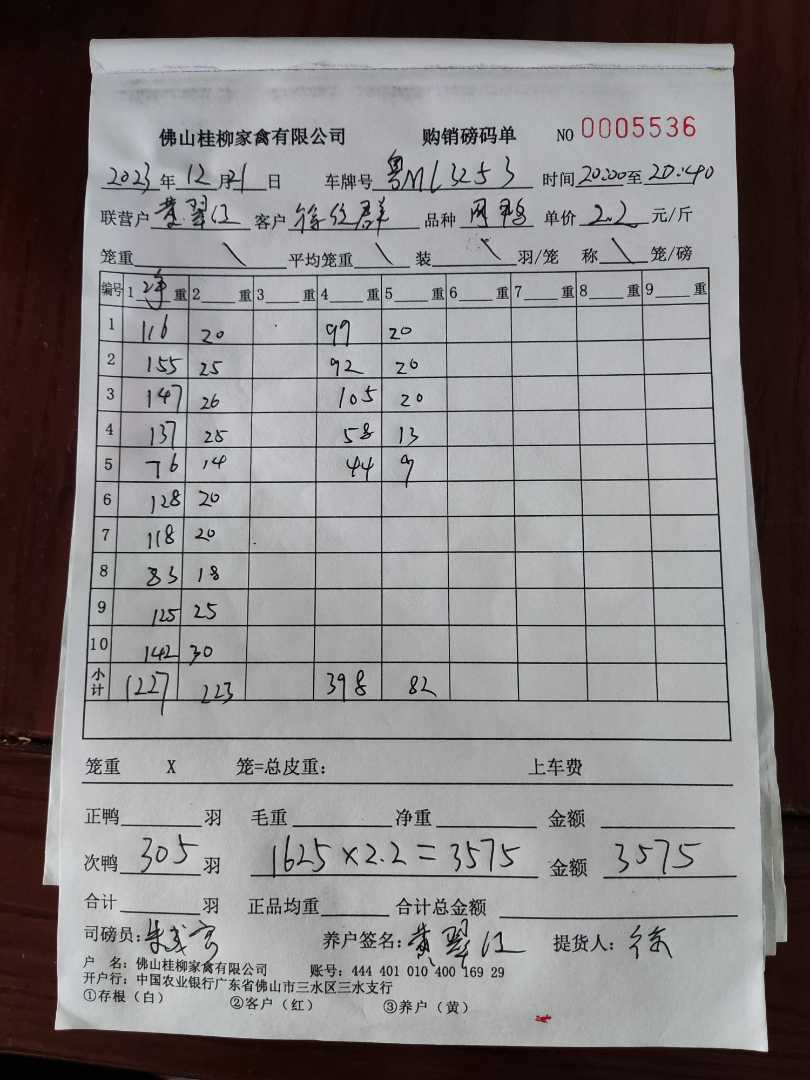 佛山桂柳家禽有限公司 购销磅码单 NO 0005536
2023年12月21日 车牌号 粤ML3253 时间20:00至20:40
联营户 黄翠江 客户 徐 群 品种 肉鸭 单价 2.2 元/斤
笼重 \ 平均笼重 \ 装 \ 羽/笼 称 \ 笼/磅
编号 1 净 重 2 重 3 重 4 重 5 重 6 重 7 重 8 重 9 重
1 116 20 99 20
2 155 25 92 20
3 147 26 105 20
4 137 25 58 13
5 76 14 44 9
6 128 20
7 118 20
8 83 18
9 125 25
10 142 30
小计 1227 223 398 82
笼重 X 笼=总皮重: 上车费
正鸭 羽 毛重 净重 金额
次鸭 305 羽 1625×2.2=3575 金额 3575
合计 羽 正品均重 合计总金额
司磅员: 养户签名: 黄翠江 提货人: 徐
户 名: 佛山桂柳家禽有限公司 账号: 444 401 010 400 169 29
开户行: 中国农业银行广东省佛山市三水区三水支行
①存根(白) ②客户(红) ③养户(黄)